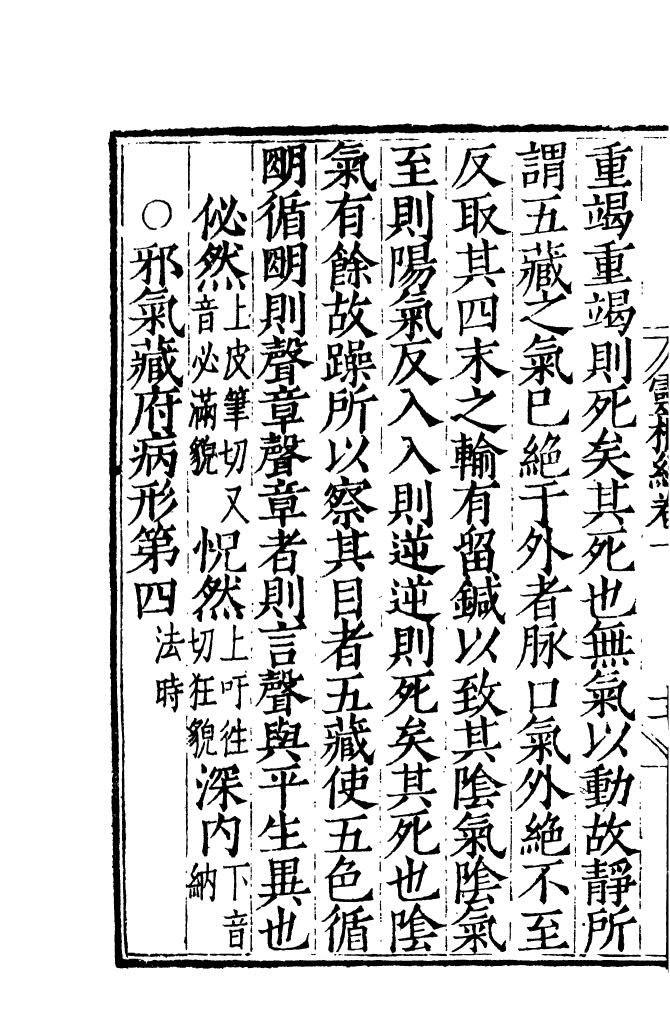 重竭重竭則死矣其死也無氣以動故靜所
謂五藏之氣已絕于外者脉口氣外絕不至
反取其四末之輸有留鍼以致其陰氣陰氣
至則陽氣反入入則逆逆則死矣其死也陰
氣有餘故躁所以察其目者五藏使五色循
朙循朙則聲章聲章者則言聲與平生異也
佖然上皮筆切又音必滿貌 怳然上吁徃切狂貌 深内下音納
○邪氣藏府病形第四法時